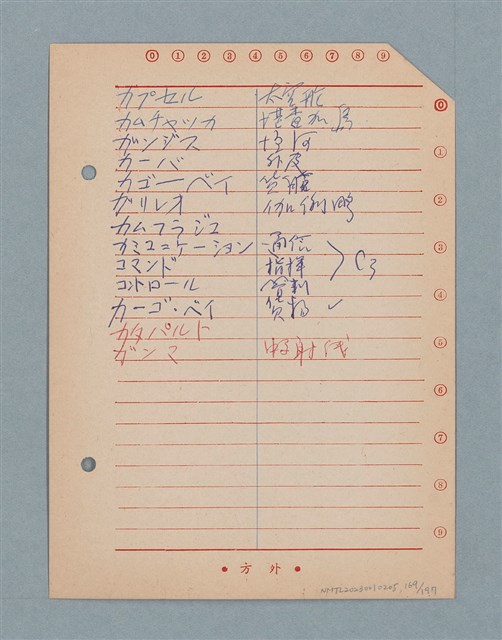 0 1 2 3 4 5 6 7 8 9
カプセル 太空舱
カムチャッカ 堪查加
ガンジス 恒河
カーバ
カゴーベイ
ガリレオ 伽俐略
カムフラジュ
カミュニケーション 通信
コマンド 指揮 C3
コントロール 管制
カーゴ・ベイ 貨艙 ✓
カタパルト
ガンマ
0
1
2
3
4
5
6
7
8
9
• 方外 •